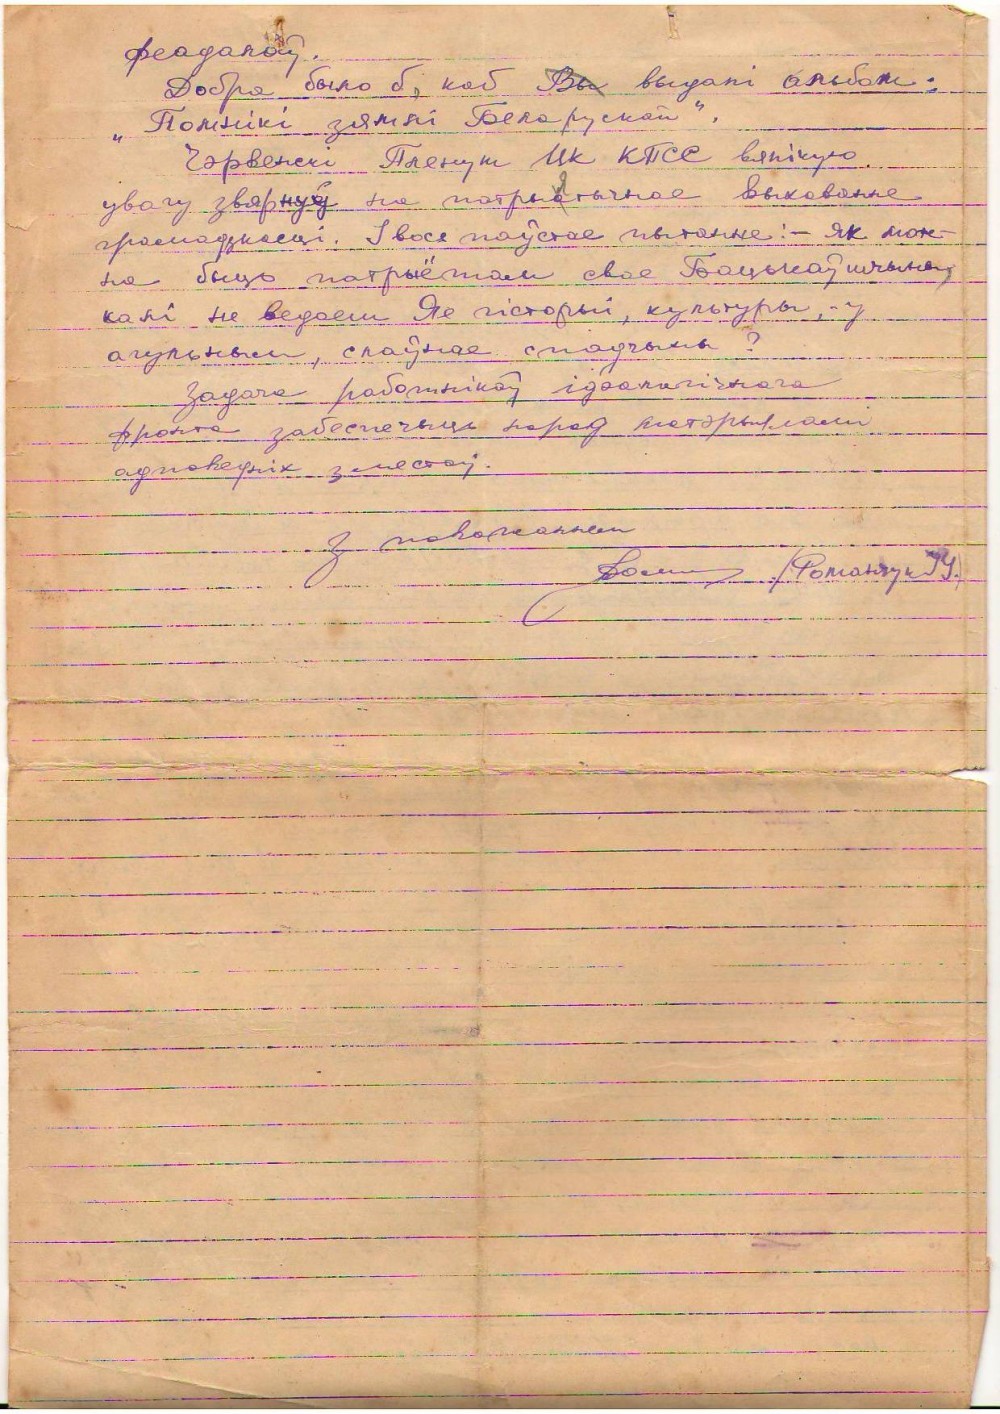 феадалаў.
Добра было б, каб Вы выдалі альбом:
„Помнікі зямлі Беларускай".
Чэрвенскі Пленум ЦК КПСС вялікую
увагу звярнуў на патрыятычнае выхаванне
грамадзкасці. І вось паўстае пытанне: – як мож-
на быць патрыётам свае Бацькаўшчыны,
калі не ведаеш Яе гісторыі, культуры, – у
агульным, слаўнае спадчыны?
Задача работнікаў ідэалагічнага
фронта забеспечыць народ матэрыяламі
адповедніх зместаў.
З паважаннем
(Романчук